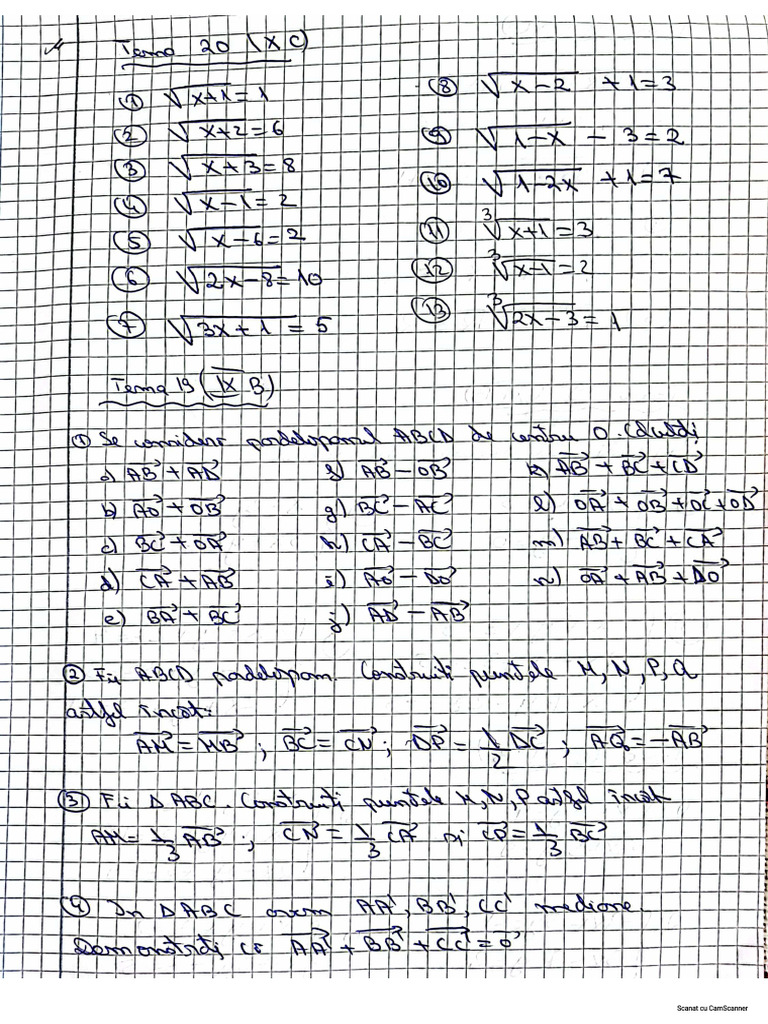 Tema 20 (X C)
① √(x+1) = 1
② √(x+2) = 6
③ √(x+3) = 8
④ √(x-1) = 2
⑤ √(x-6) = 2
⑥ √(2x-8) = 10
⑦ √(3x+1) = 5
⑧ √(x-2) + 1 = 3
⑨ √(1-x) - 3 = 2
⑩ √(1-2x) + 1 = 7
⑪ ∛(x+1) = 3
⑫ ∛(x-1) = 2
⑬ ∛(2x-3) = 1
Tema 19 (IX B)
① Se consideră paralelogramul ABCD de centru O. Calculați
a) AB⃗ + AD⃗
b) AO⃗ + OB⃗
c) BC⃗ + OA⃗
d) CA⃗ + AB⃗
e) BA⃗ + BC⃗
f) AB⃗ - OB⃗
g) BC⃗ - AC⃗
h) CA⃗ - BC⃗
i) AO⃗ - DO⃗
j) AD⃗ - AB⃗
k) AB⃗ + BC⃗ + CD⃗
l) OA⃗ + OB⃗ + OC⃗ + OD⃗
m) AB⃗ + BC⃗ + CA⃗
n) OA⃗ + AB⃗ + DO⃗
② Fie ABCD paralelogram. Construiți punctele M, N, P, Q
astfel încât:
AM⃗ = MB⃗ ; BC⃗ = CN⃗ ; DP⃗ = 1/2 DC⃗ ; AQ⃗ = -AB⃗
③ Fie Δ ABC. Construiți punctele M, N, P astfel încât
AM⃗ = 1/3 AB⃗ ; CN⃗ = 1/3 CA⃗ și CP⃗ = 1/3 BC⃗
④ În Δ ABC avem AA', BB', CC' mediane.
Demonstrați că AA'⃗ + BB'⃗ + CC'⃗ = 0⃗
Scanat cu CamScanner